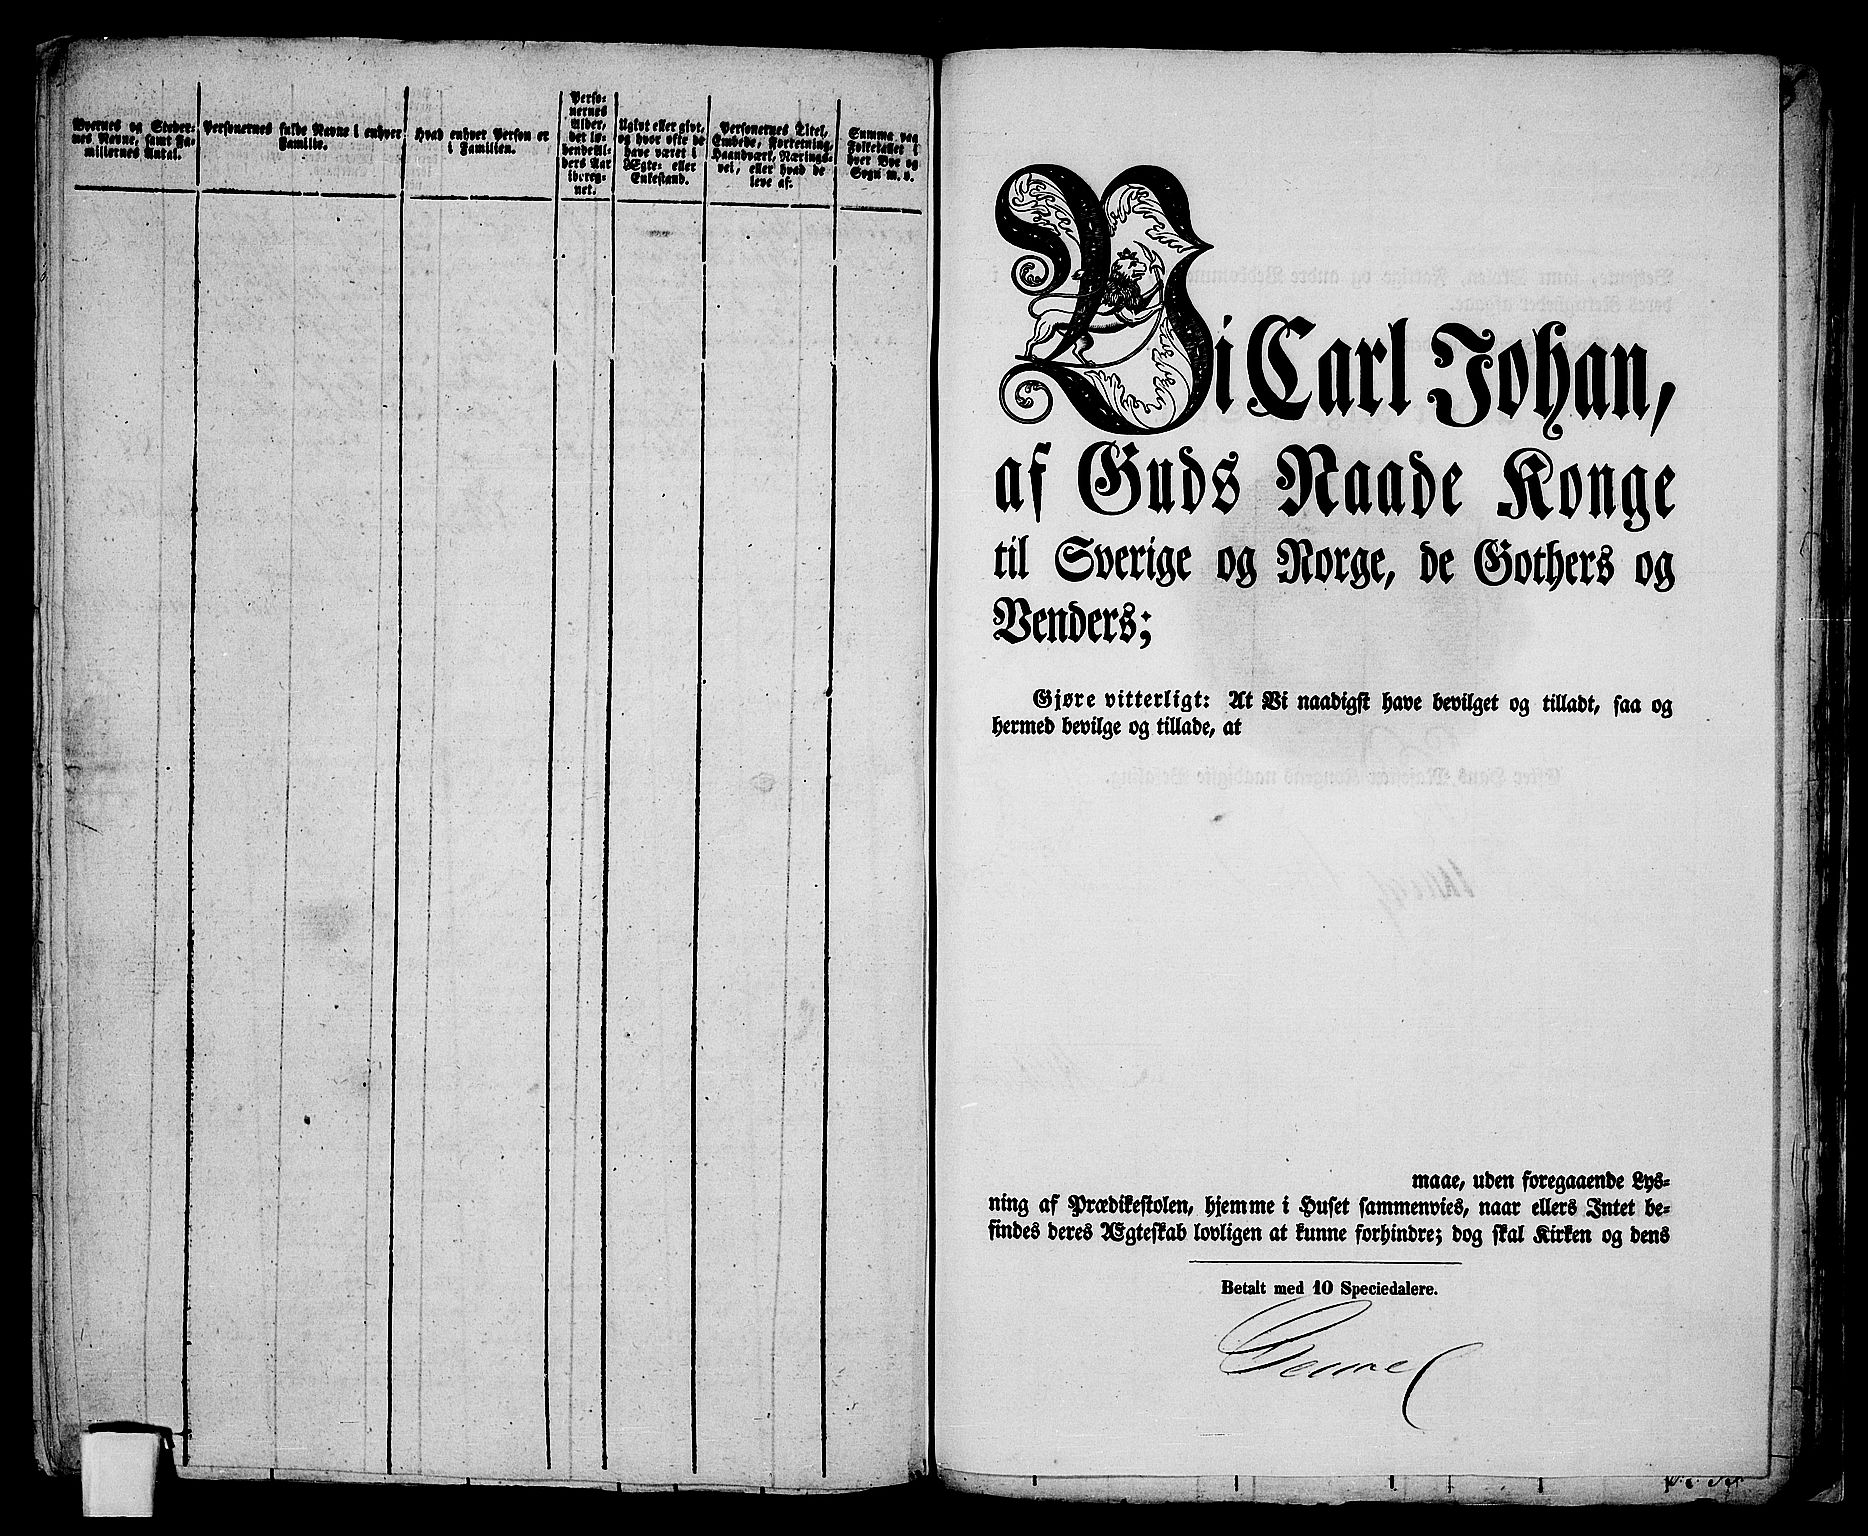 Byernes og Steder-
nes Navne, samt Fa-
miliernes Antal.
Personernes fulde Navne i enhver
Familie.
Hvad enhver Person er
i Familien.
Perso-
nernes
Alder,
det lø-
bende Al-
ders Aar
ibereg-
net.
Ugivt eller givt,
og hvor ofte de
have været i
Ægte- eller
Enkestand.
Personernes Titel,
Embede, Forretning,
Haandværk, Nærings-
vei, eller hvad de
leve af.
Summa paa
Folketallet i
hver Bye og
Sogn m. v.
Vi Carl Johan,
af Guds Naade Konge
til Sverige og Norge, de Gothers og
Venders;
Gjøre vitterligt: At Vi naadigst have bevilget og tilladt, saa og
hermed bevilge og tillade, at
maae, uden foregaaende Lys-
ning af Prædikestolen, hjemme i Huset sammenvies, naar ellers Intet be-
findes deres Ægteskab lovligen at kunne forhindre; dog skal Kirken og dens
Betalt med 10 Speciedalere.